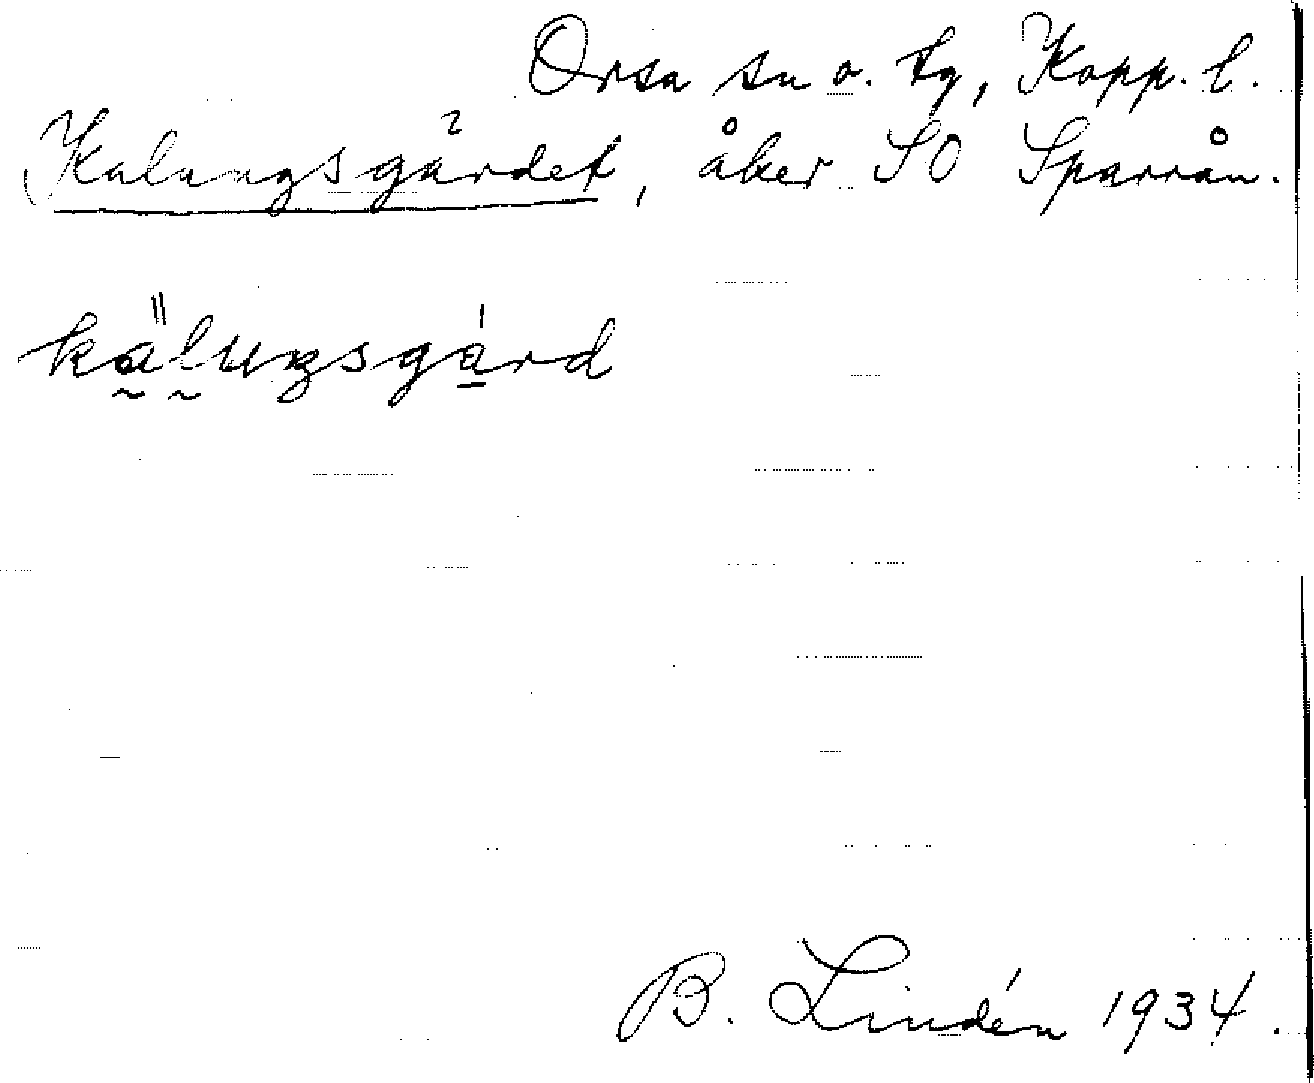 Orsa sn o. tg, Kopp. l.
Kalungsgärdet, åker SO Sparrån.
kälungsgárd
B. Lindén 1934.